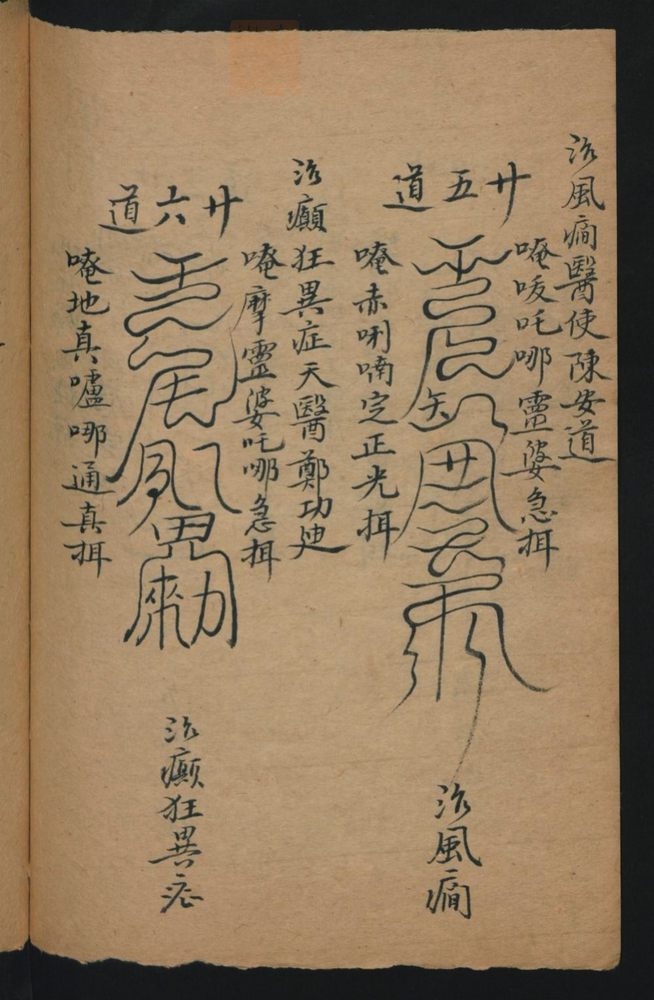 治風癇醫使陳安道
唵吱吒哪靈婆急揖
廿五道
唵赤唎喃定正光揖
治風癇
治癲狂異症天醫鄭功廸
唵摩靈婆吒哪急揖
廿六道
唵地真嚧哪通真揖
治癲狂異症